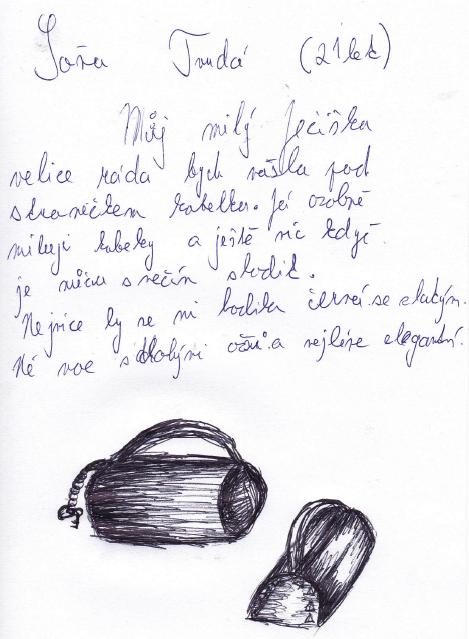 Soňa Tvrdá (21 let)
Můj milý Ježíšku
velice ráda bych našla pod
stromečkem kabelku. Já osobně
miluji kabelky a ještě víc když
je můžu s něčím sladit.
Nejvíce by se mi hodila černá se zlatým.
Né moc
a nejlépe elegantní.